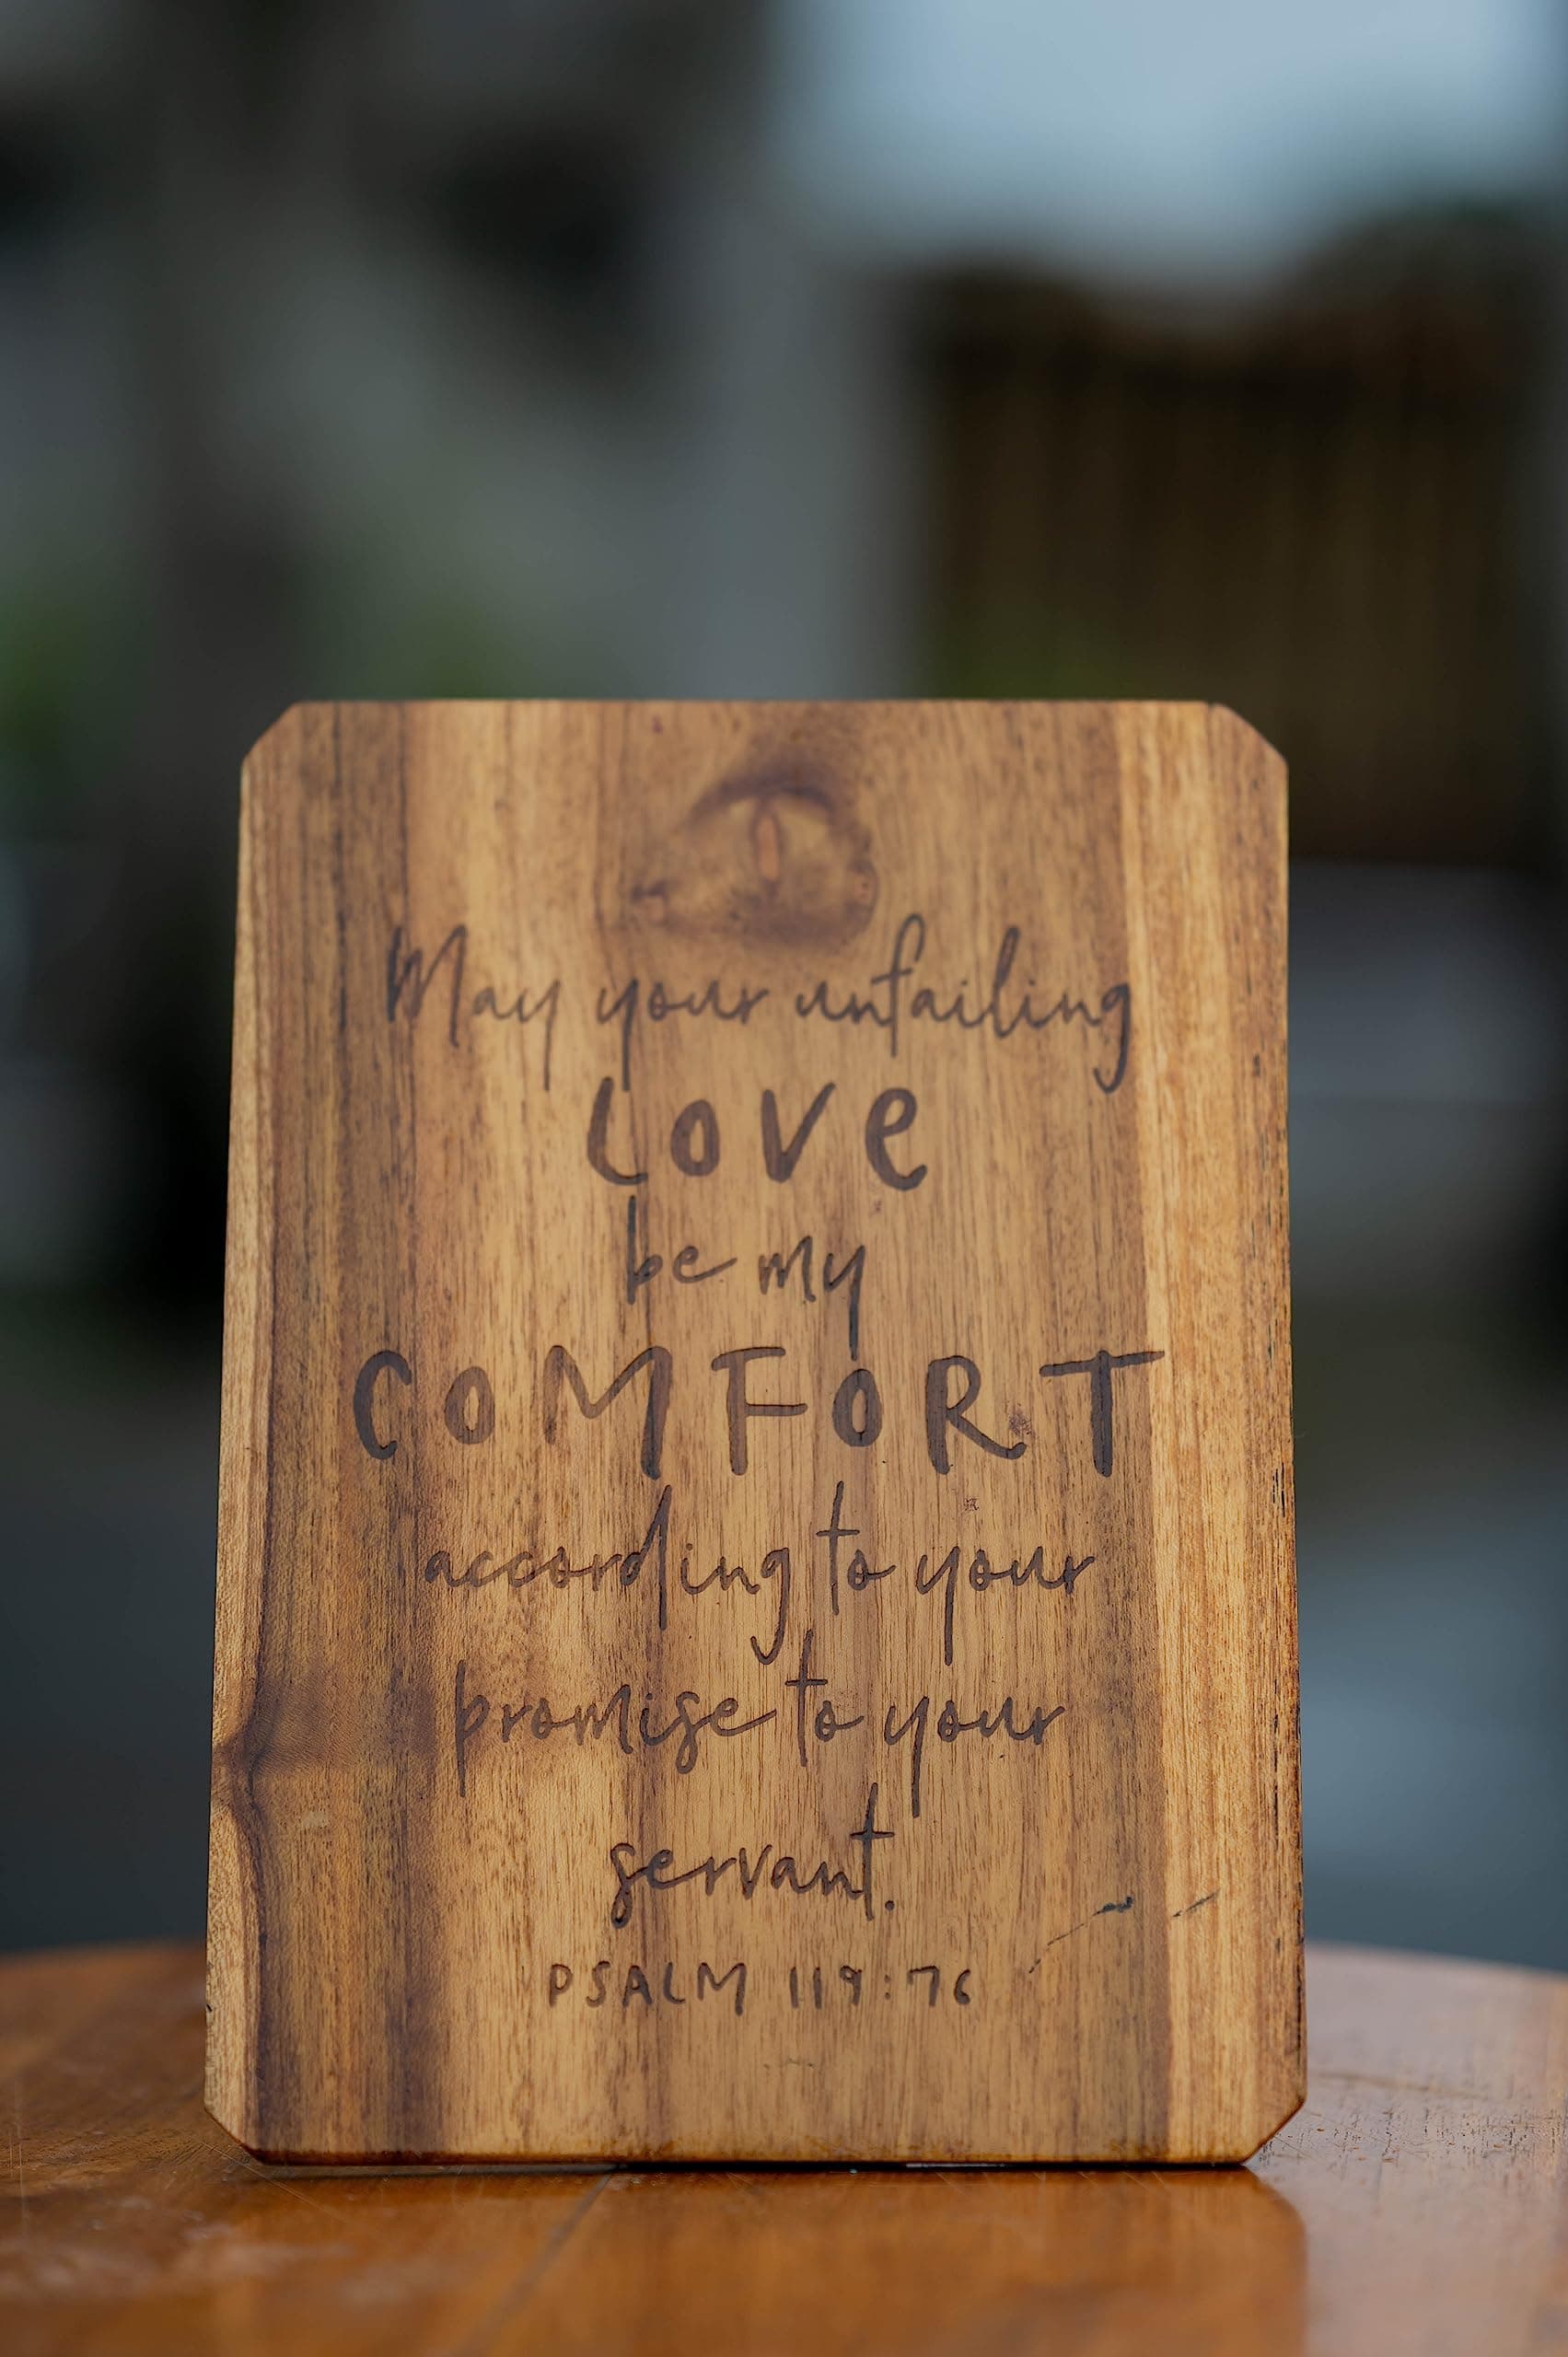 May your unfailing
LOVe
be my
COMFORT
according to your
promise to your
servant.
PSALM 119:76